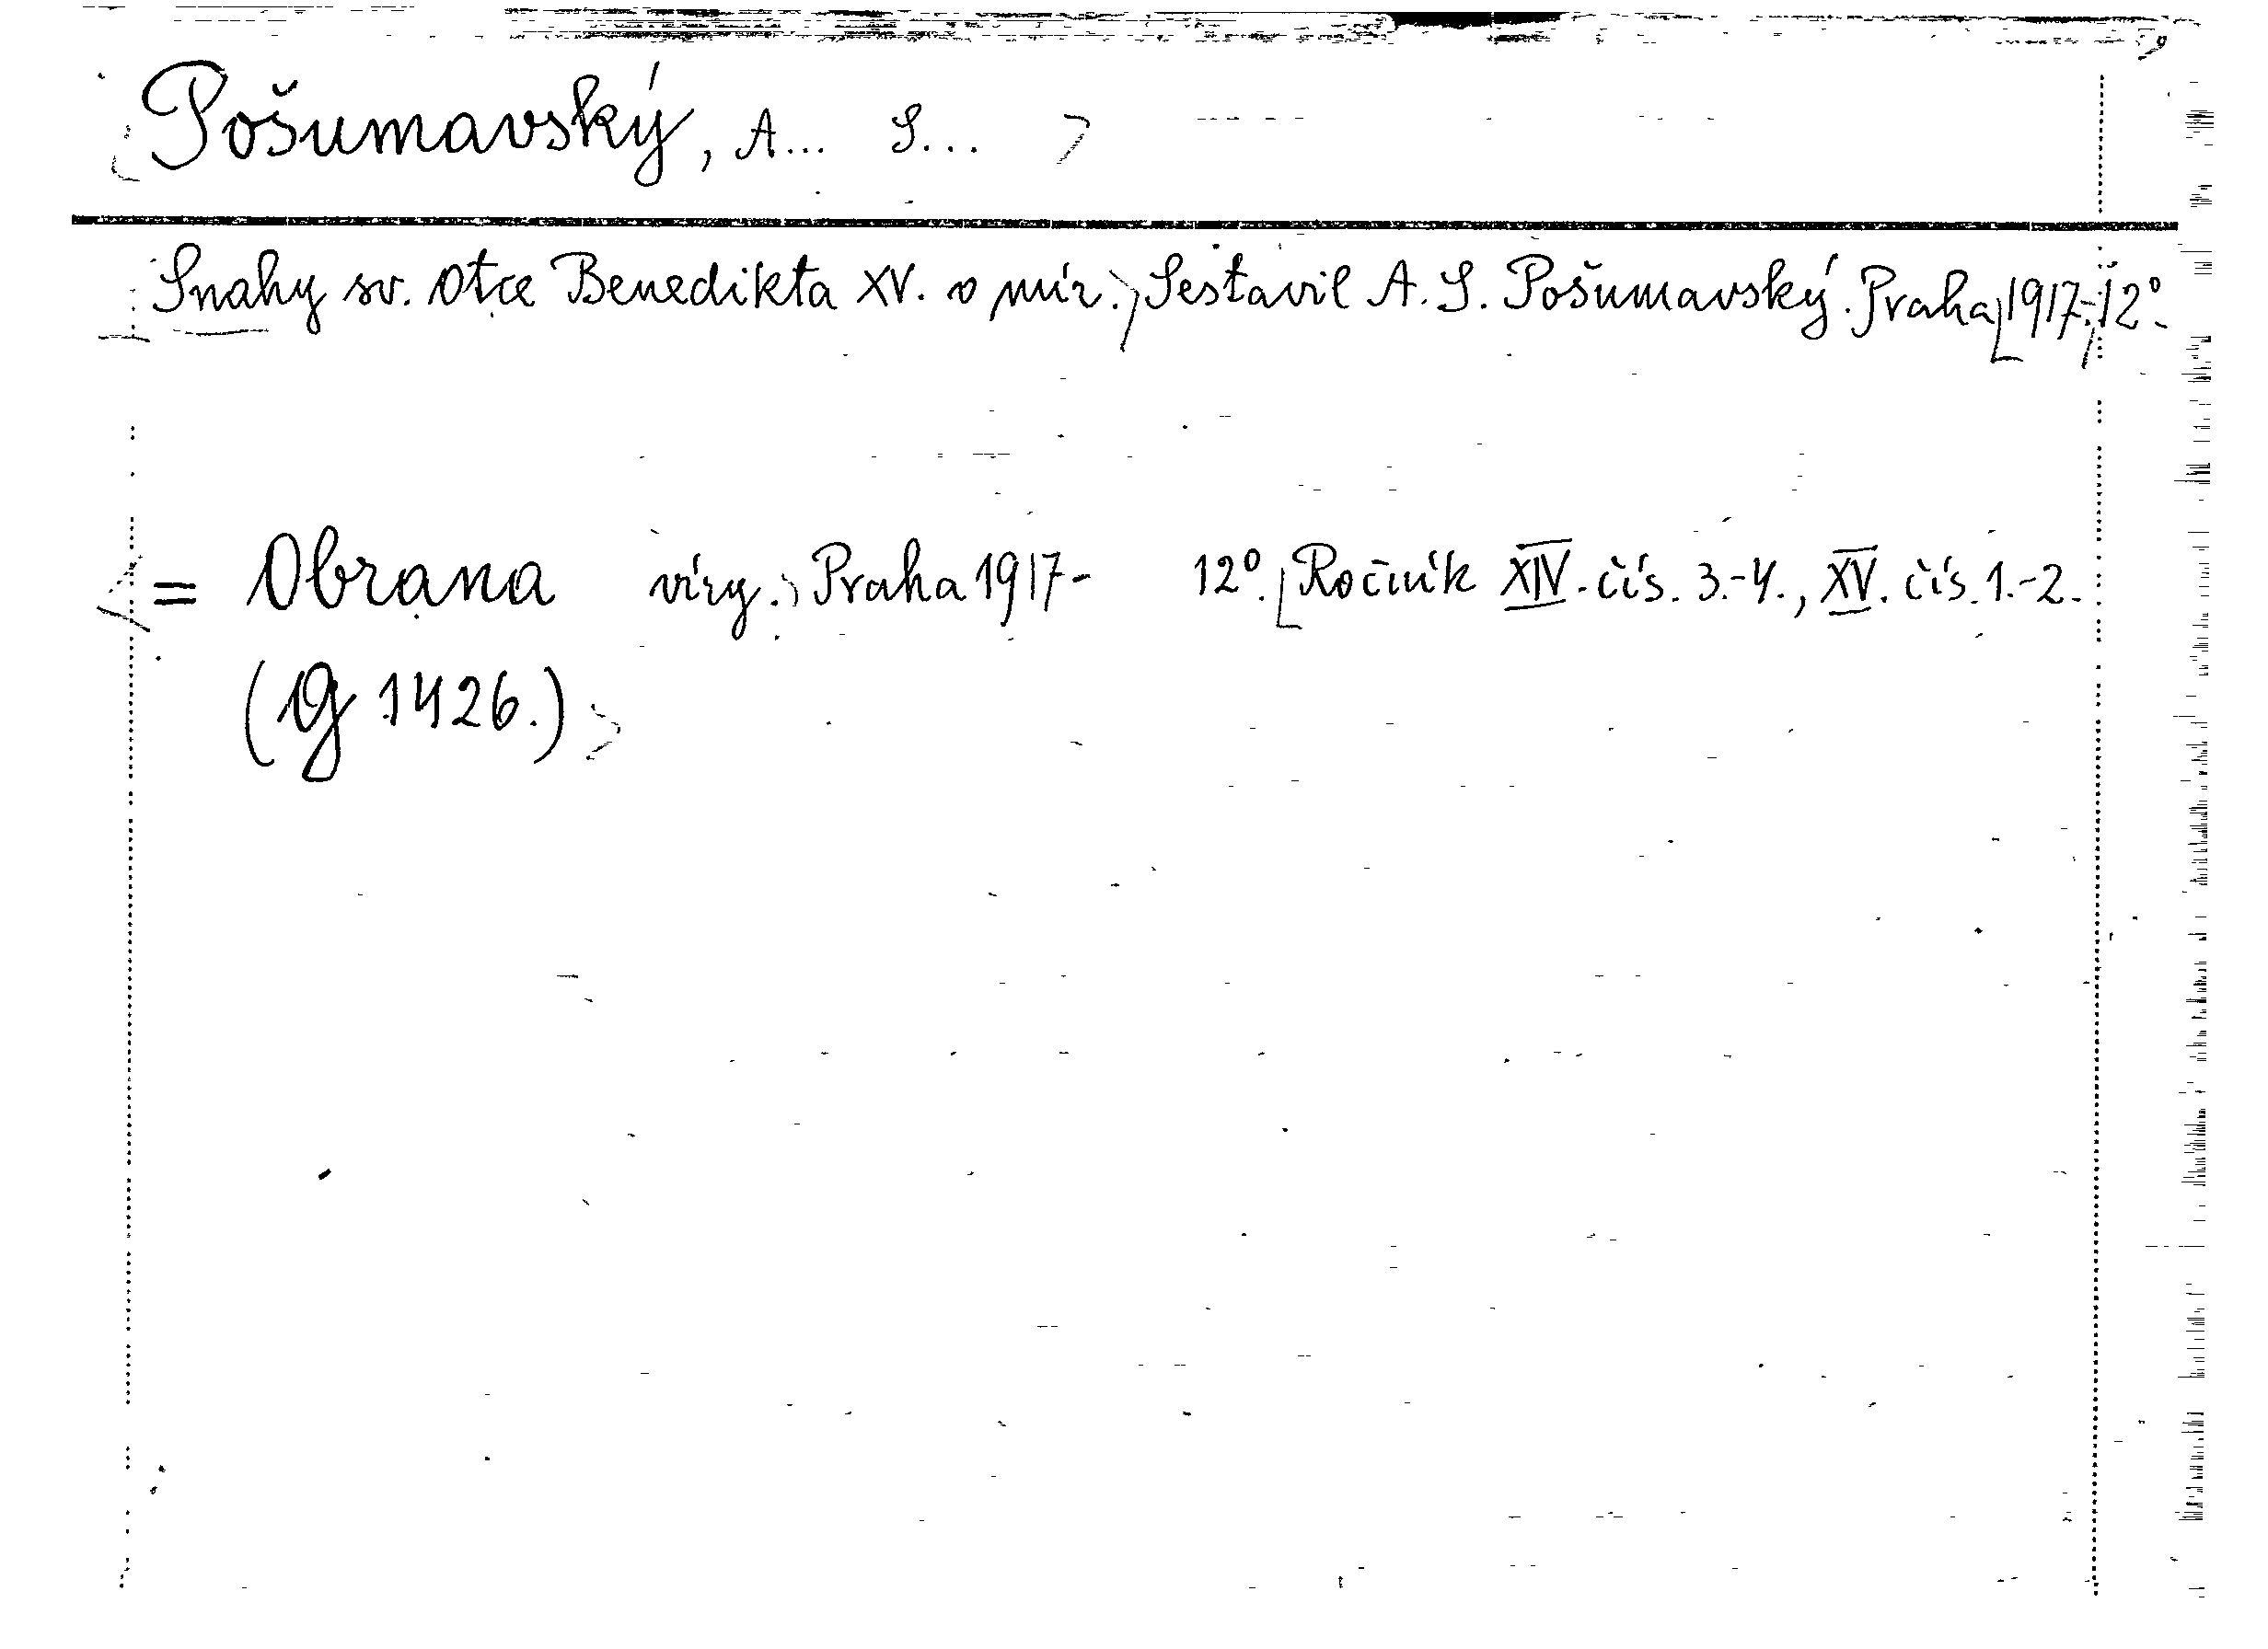 Pošumavský, A... S...
Snahy sv. Otce Benedikta XV. o mír. Sestavil A. S. Pošumavský. Praha 1917. 12°.
= Obrana víry. Praha 1917- 12°. Ročník XIV. čís. 3.-4., XV. čís. 1.-2.
(9g 1426.)